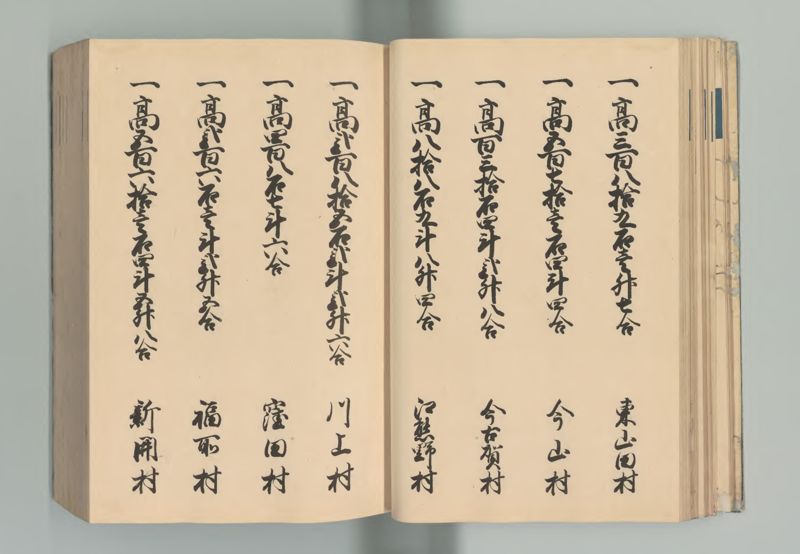 一高三百八拾九石壱升七合 東山田村
一高五百七拾壱石四斗四合 今山村
一高百三拾石四斗弐升八合 今古賀村
一高八拾八石九斗八升四合 江熊野村
一高弐百八拾五石弐斗弐升六合 川上村
一高四百八石七斗六合 窪田村
一高弐百六石壱斗弐升五合 福所村
一高五百六拾壱石四斗五升八合 新開村